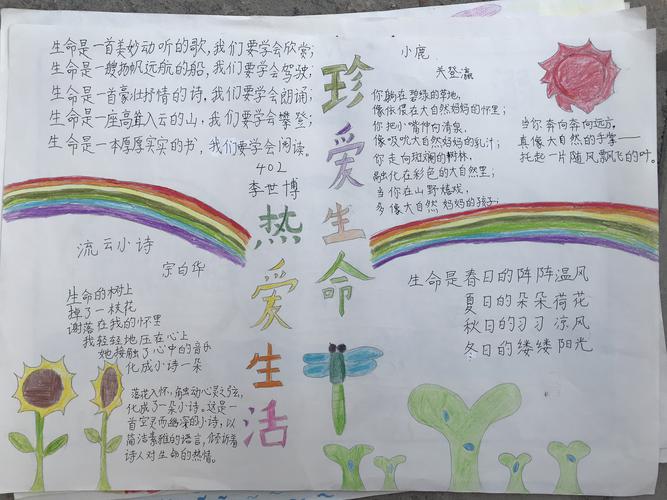 生命是一首美妙动听的歌,我们要学会欣赏;
生命是一艘扬帆远航的船,我们要学会驾驶;
生命是一首豪壮抒情的诗,我们要学会朗诵;
生命是一座高耸入云的山,我们要学会攀登;
生命是一本厚厚实实的书,我们要学会阅读。
402
李世博
珍爱生命
热爱生活
小鹿
关登瀛
你躺在碧绿的草地,
像依偎在大自然妈妈的怀里;
你把小嘴伸向清泉,
像吸吮大自然妈妈的乳汁;
你走向斑斓的树林,
融化在彩色的大自然里;
当你在山野嬉戏,
多像大自然妈妈的孩子;
当你奔向奔向远方,
真像大自然的手掌——
托起一片随风飘飞的叶。
流云小诗
宗白华
生命的树上
掉了一枝花
谢落在我的怀里
我轻轻地压在心上
她接触了心中的音乐
化成小诗一朵
落花入怀,触动心灵之弦,
化成了一朵小诗。这是一
首空灵而幽深的小诗,以
简洁素雅的语言,倾诉着
诗人对生命的热情。
生命是春日的阵阵温风
夏日的朵朵荷花
秋日的习习凉风
冬日的缕缕阳光